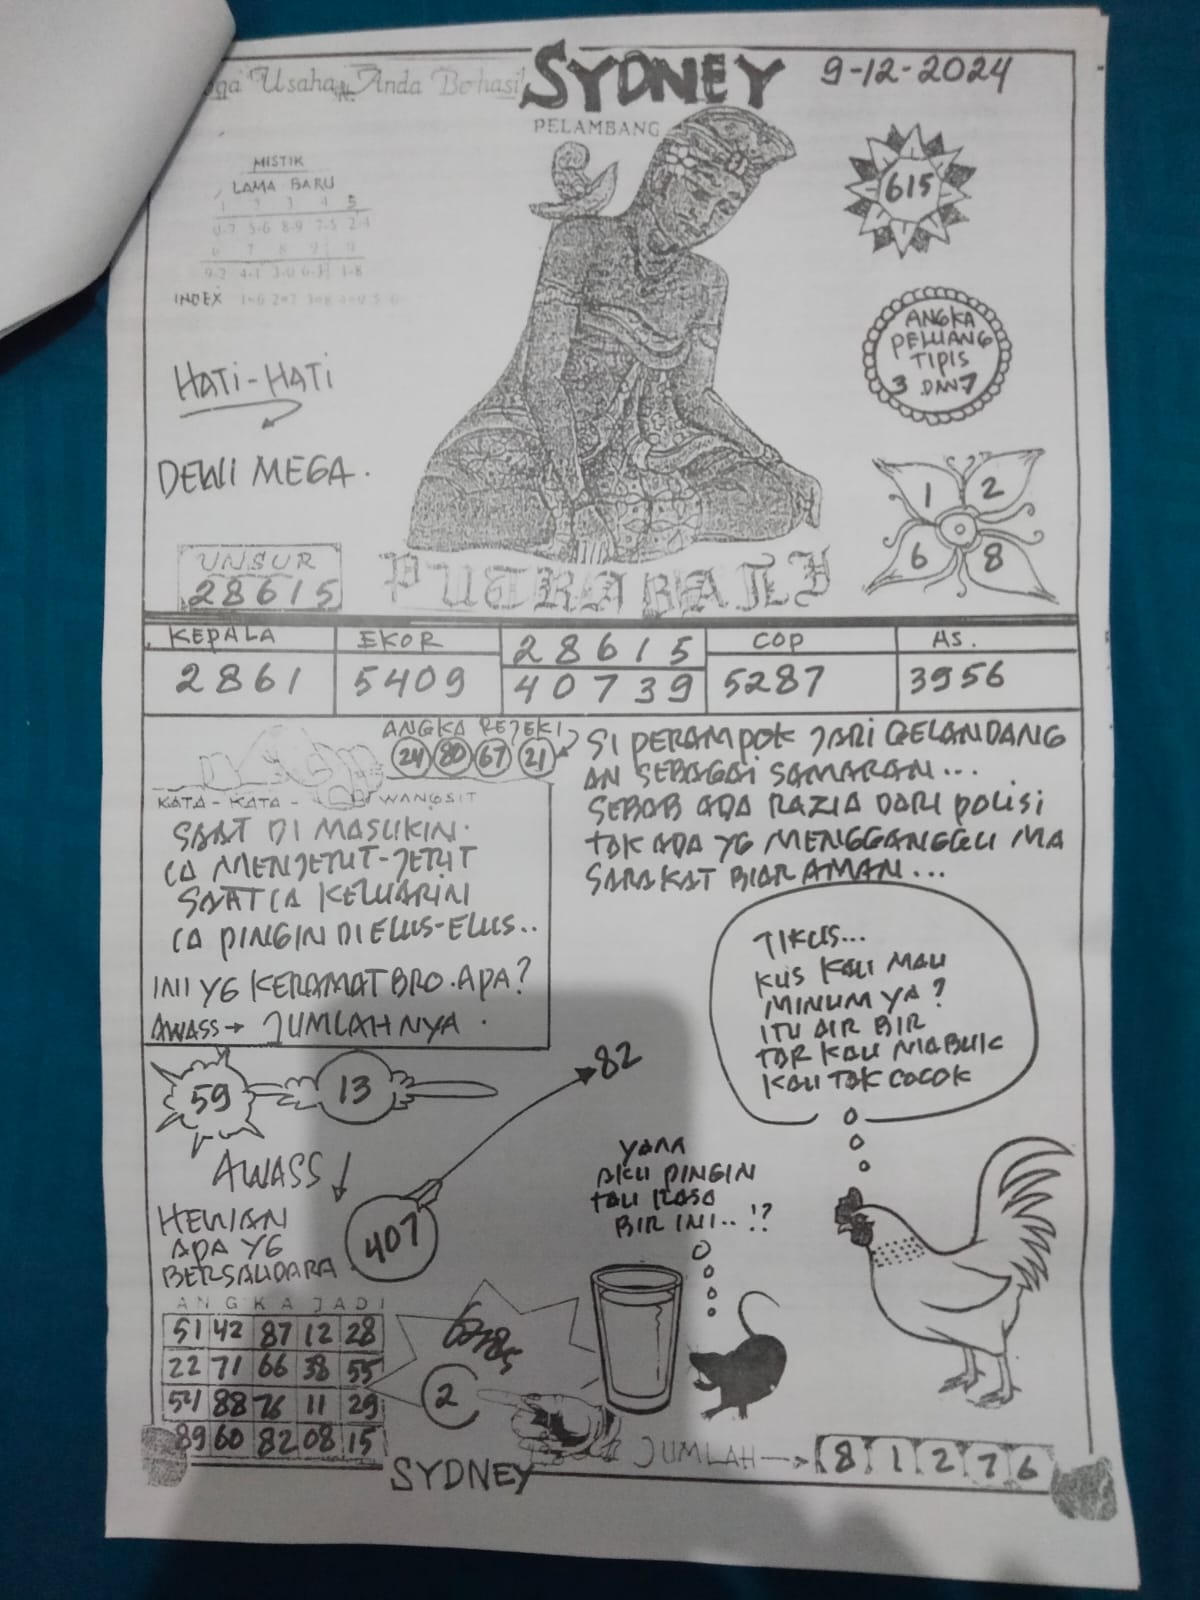 Usaha Anda Berhasil
SYDNEY
9-12-2024
PELAMBANG
615
MISTIK
LAMA BARU
1 2 3 4 5
0-7 5-6 8-9 7-5 2-4
6 7 8 9 0
9-2 4-1 3-0 6-3 1-8
INDEX
ANGKA
PELUANG
TIPIS
3 DAN 7
HATI-HATI
DEWI MEGA.
1 2
6 8
UNSUR
28615
PUTRA BALI
KEPALA EKOR 28615 COP AS.
2861 5409 40739 5287 3956
ANGKA REJEKI
24 80 67 21
KATA-KATA-WANGSIT
SAAT DI MASUKIN.
IA MENJETUT-JETUT
SAAT IA KELUARIN
IA PINGIN DI ELUS-ELUS..
INI YG KERAMAT BRO.APA?
AWASS→ JUMLAHNYA.
SI PERAMPOK JARI GELANDANG
AN SEBAGAI SAMARAN...
SEBAB ADA RAZIA DARI POLISI
TAK ADA YG MENGGANGGU MA
SARAKAT BIAR AMAN...
TIKUS...
KUS KAU MAU
MINUM YA?
ITU AIR BIR
TAR KAU MABUK
KAU TAK COCOK
59 13
82
AWASS
407
HEWAN
APA YG
BERSAUDARA
YAAA
AKU PINGIN
TAU RASA
BIR INI..!?
ANGKA JADI
51 42 87 12 28
22 71 66 38 55
54 88 76 11 29
89 60 82 08 15
2
JUMLAH→ 8 1 2 7 6
SYDNEY